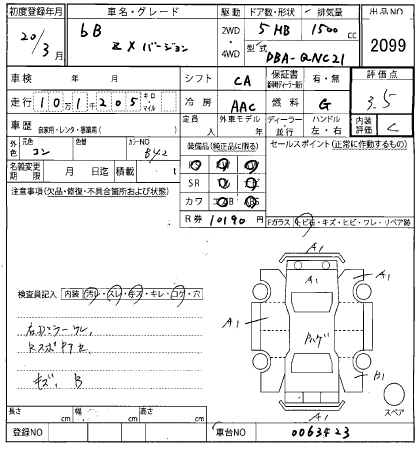 初度登録年月 車名・グレード 駆動 ドア数・形状 排気量 出品NO
20/3月 bB Z Xバージョン 2WD 4WD 5 HB 1500cc 2099
型式 DBA-QNC21
車検 年 月 シフト CA 保証書 有・無 評価点
走行 101千205 キロ・マイル 冷房 AAC 燃料 G 3.5
車歴 自家用・レンタ・事業用( ) 定員 人 外車モデル 年 ディーラー・並行 ハンドル 左・右 内装評価 C
外色 元色 コン 色替 カラーNO B42 装備品(純正品に限る) セールスポイント(正常に作動するもの)
名義変更期限 月 日迄 積載 t
SR
カワ
注意事項(欠品・修復・不具合箇所および状態) R券 10190円 Fガラス トビ・キズ・ヒビ・ワレ・リペア跡
A1
A1
A1
A1
検査員記入 内装 汚レ・スレ・キズ・キレ・コゲ・穴
ハゲ
右ドアミラーワレ
B1
キズ、B
A1
スペア
長さ cm 幅 cm 高さ cm
登録NO 車台NO 0063423